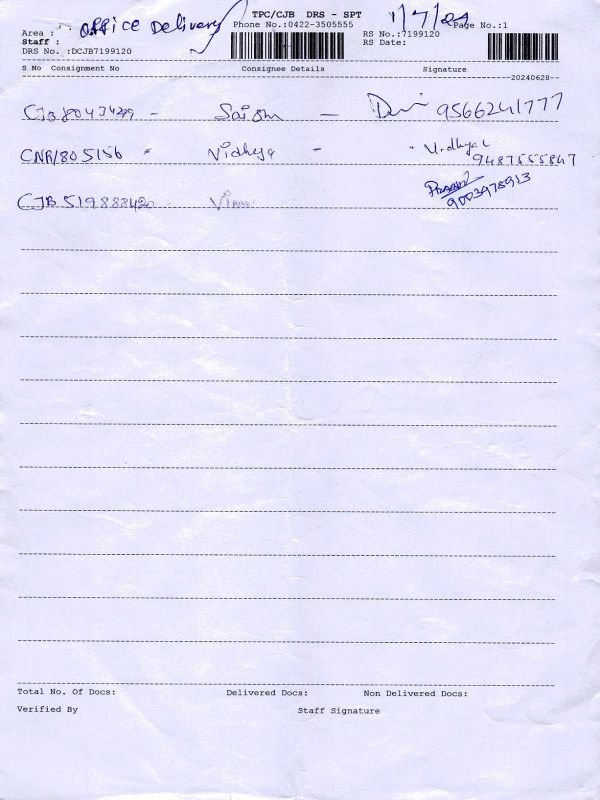 TPC/CJB DRS - SPT 1/7/24
Area : Office Delivery Phone No.:0422-3505555 RS No.:7199120 Page No.:1
Staff : RS Date:
DRS No. :DCJB7199120
S No Consignment No Consignee Details Signature
20240628
CJB8043499 - Sai - 9566241777
CNR1805156 - Vidhya - Vidhya
9487555847
CJB 519888420 Vim
9003978913
Total No. Of Docs: Delivered Docs: Non Delivered Docs:
Verified By Staff Signature